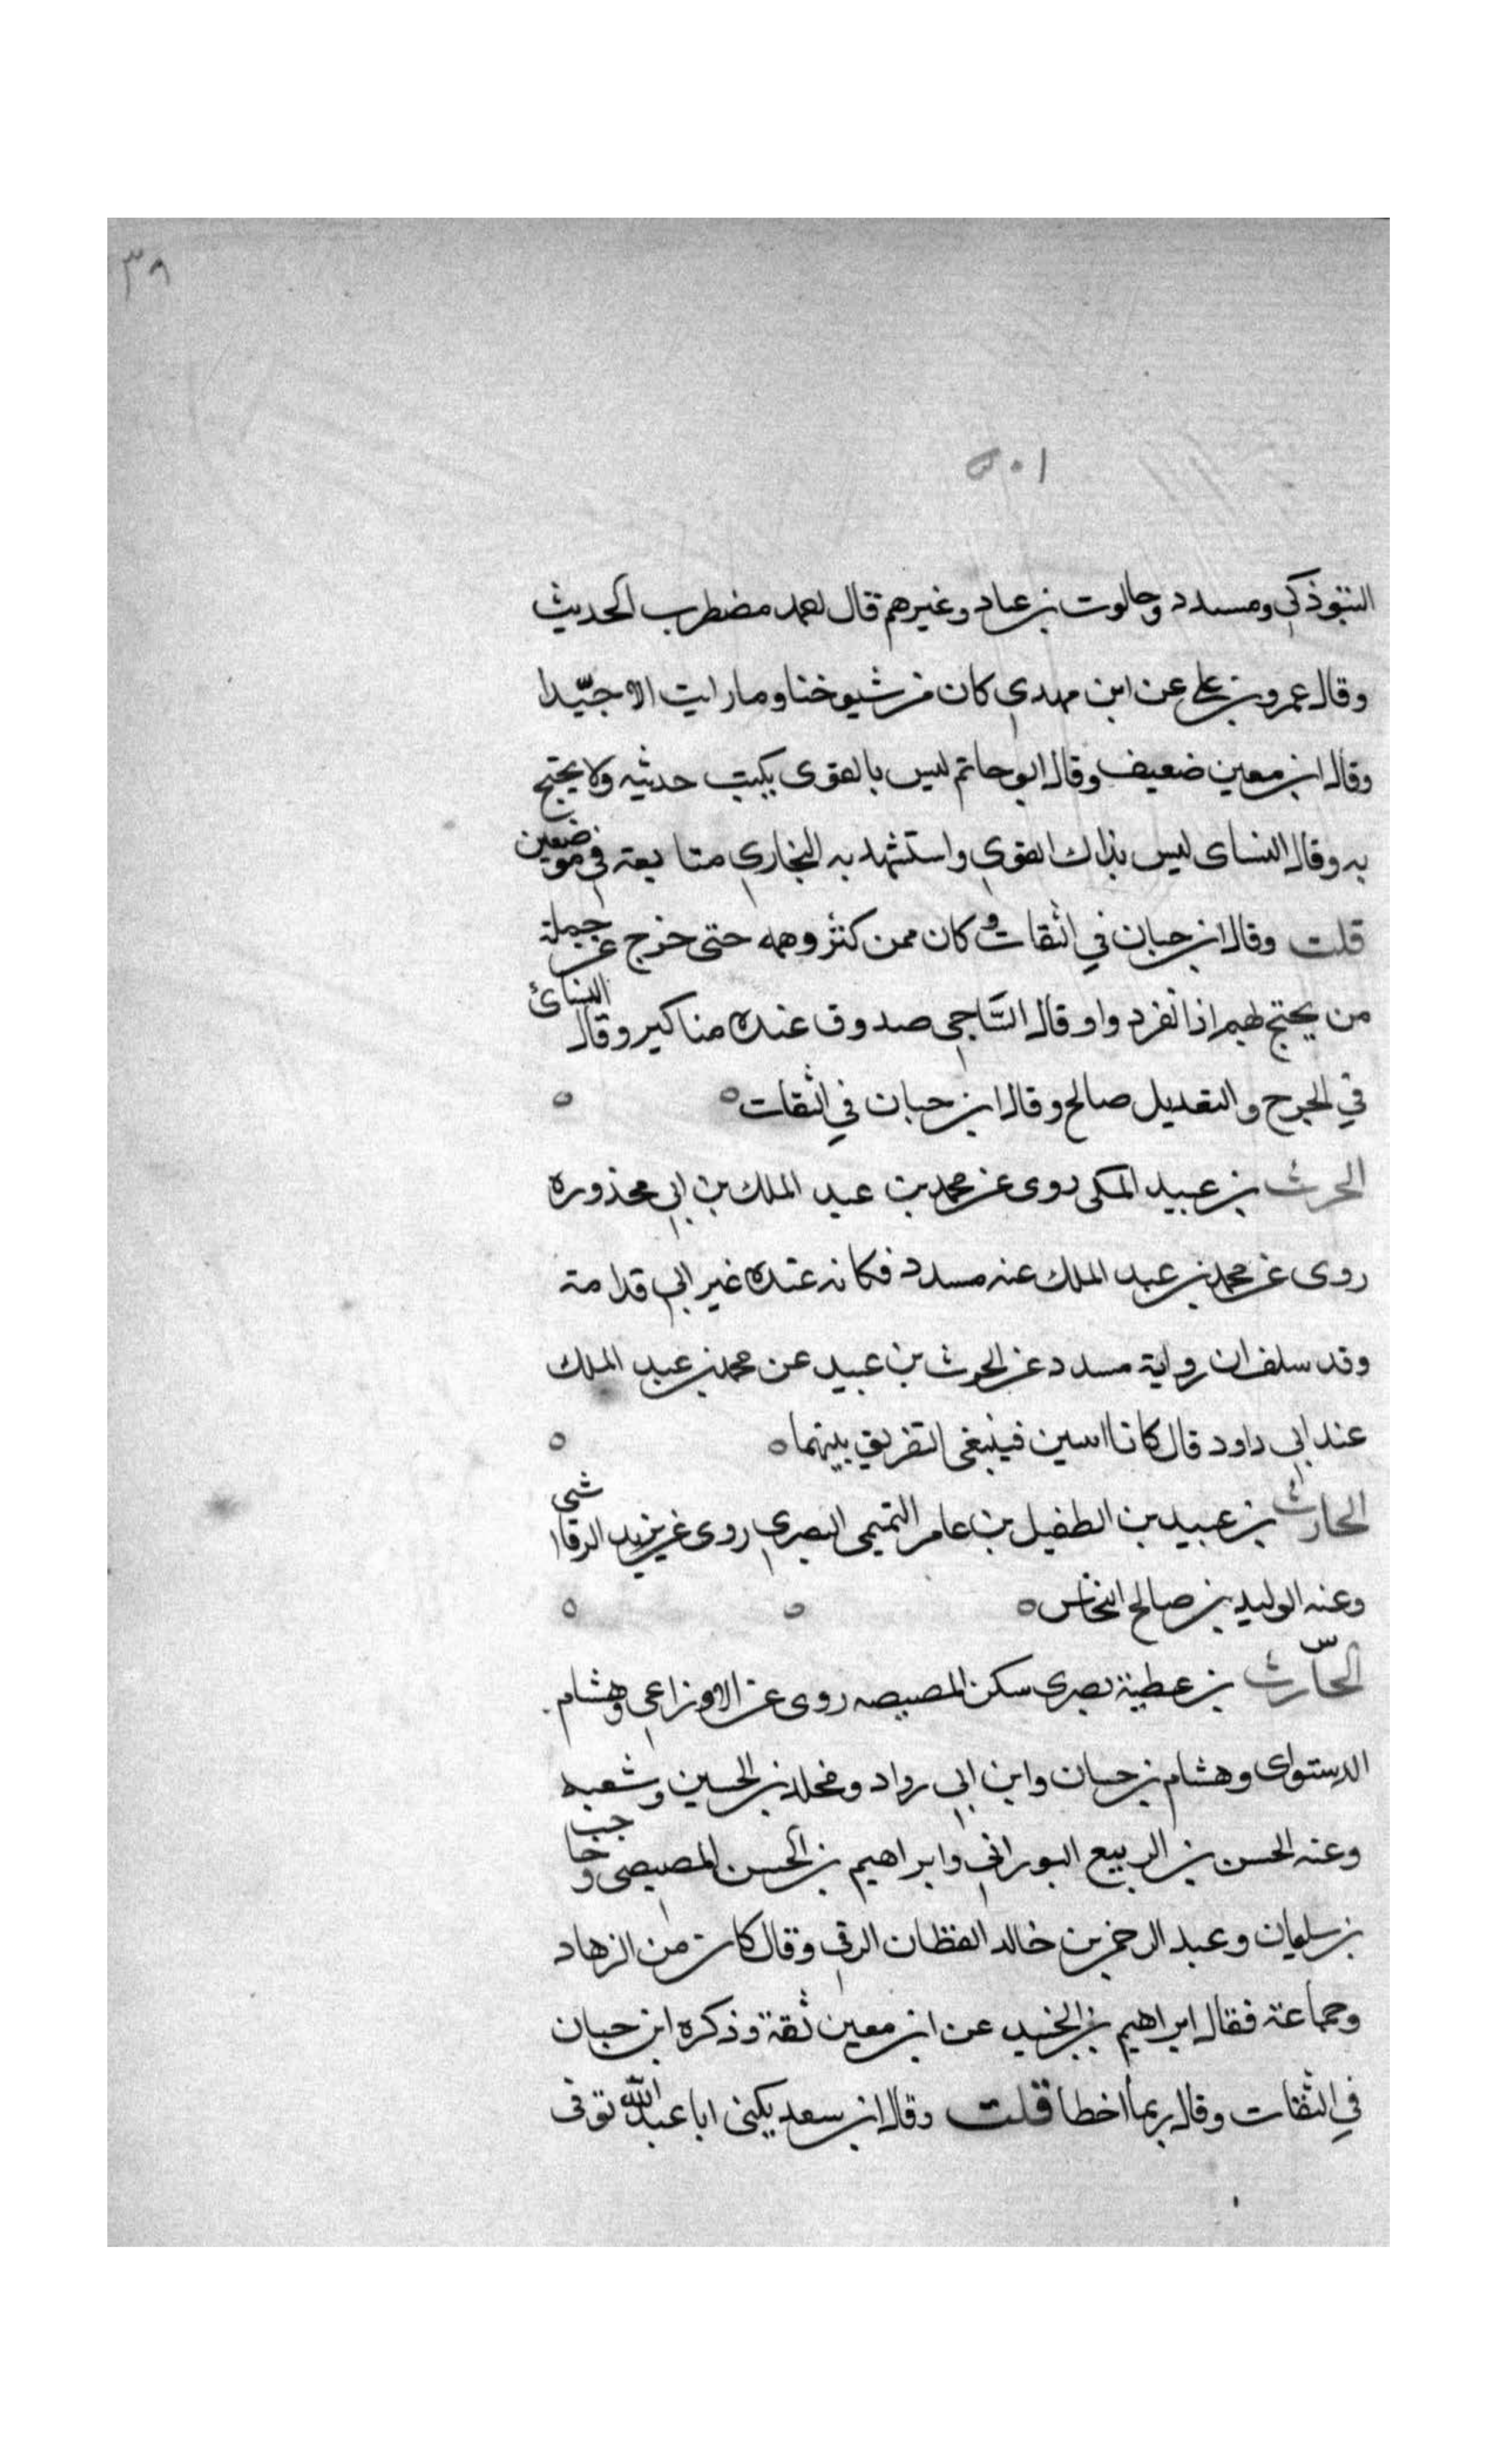 ٣٨
التبوذكي ومسدد وجالوت بن عباد وغيرهم قال احمد مضطرب الحديث
وقال عمرو بن علي عن ابن مهدي كان من شيوخنا وما رايت الا جيّدا
وقال ابن معين ضعيف وقال ابو حاتم ليس بالقوى يكتب حدثيه ولا يحتج
به وقال النساى ليس بذاك القوي واستشهد به البخاري متابعة في موضعين
قلت وقال ابن حبان في الثقات وكان ممن كثر وهمه حتى خرج عن جملة
من يحتج لهم اذا انفردوا وقال السَّاجي صدوق عنده مناكير وقال النسائ
في الجرح والتعديل صالح وقال ابن حبان في الثقات ه ه
الحرث بن عبيد المكى روى عن محمد بن عبد الملك بن ابي محذوره
روى عن محمد بن عبد الملك عنه مسدد فكانه عنده غير ابي قدامة
وقد سلف ان رواية مسدد عن الحرث بن عبيد عن محمد بن عبد الملك
عند ابي داود قال كانا اسين فينبغى التفريق بينهما ه ه
الحارث بن عبيد بن الطفيل بن عامر التميمى البصري روى عن يزيد الرقاشى
وعنه الوليد بن صالح النخاس ه ه ه
الحارث بن عطية بصرى سكن المصيصه روى عن الاوزاعي وهشام
الدستواى وهشام بن حسان وابن ابي رواد ومخلد بن الحسين وشعبه
وعنه الحسن بن الربيع البوراني وابراهيم بن الحسن المصيصى وحاجب
بن سليمان وعبد الرحمن بن خالد القطان الرقي وقال كان من الزهاد
وجماعة فقال ابراهيم بن الجنيد عن ابن معين ثقة وذكره ابن حبان
في الثقات وقال ربما اخطا قلت وقال ابن سعد يكنى ابا عبد الله توفى